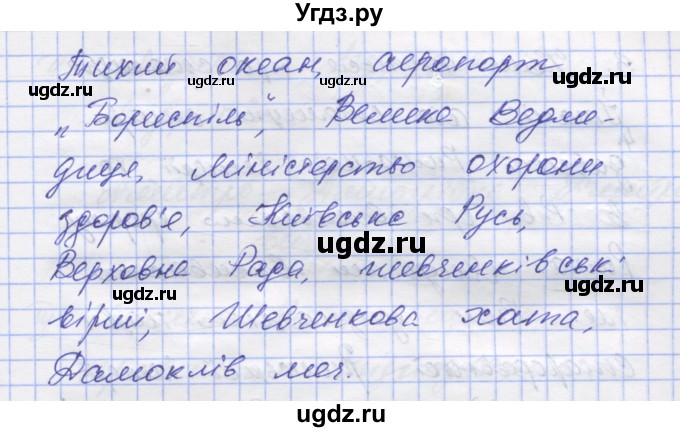 Угдз.ру
Тихий океан, аеропорт
„Бориспіль", Велика Ведме-
диця, Міністерство охорони
здоров'я, Київська Русь,
Верховна Рада, шевченківські
вірші, Шевченкова хата,
Дамоклів меч.
ugdz.ru
ugdz.ru
ugdz.ru
ugdz.ru
ugdz.ru
ugdz.ru
ugdz.ru
ugdz.ru
ugdz.ru
ugdz.ru
ugdz.ru